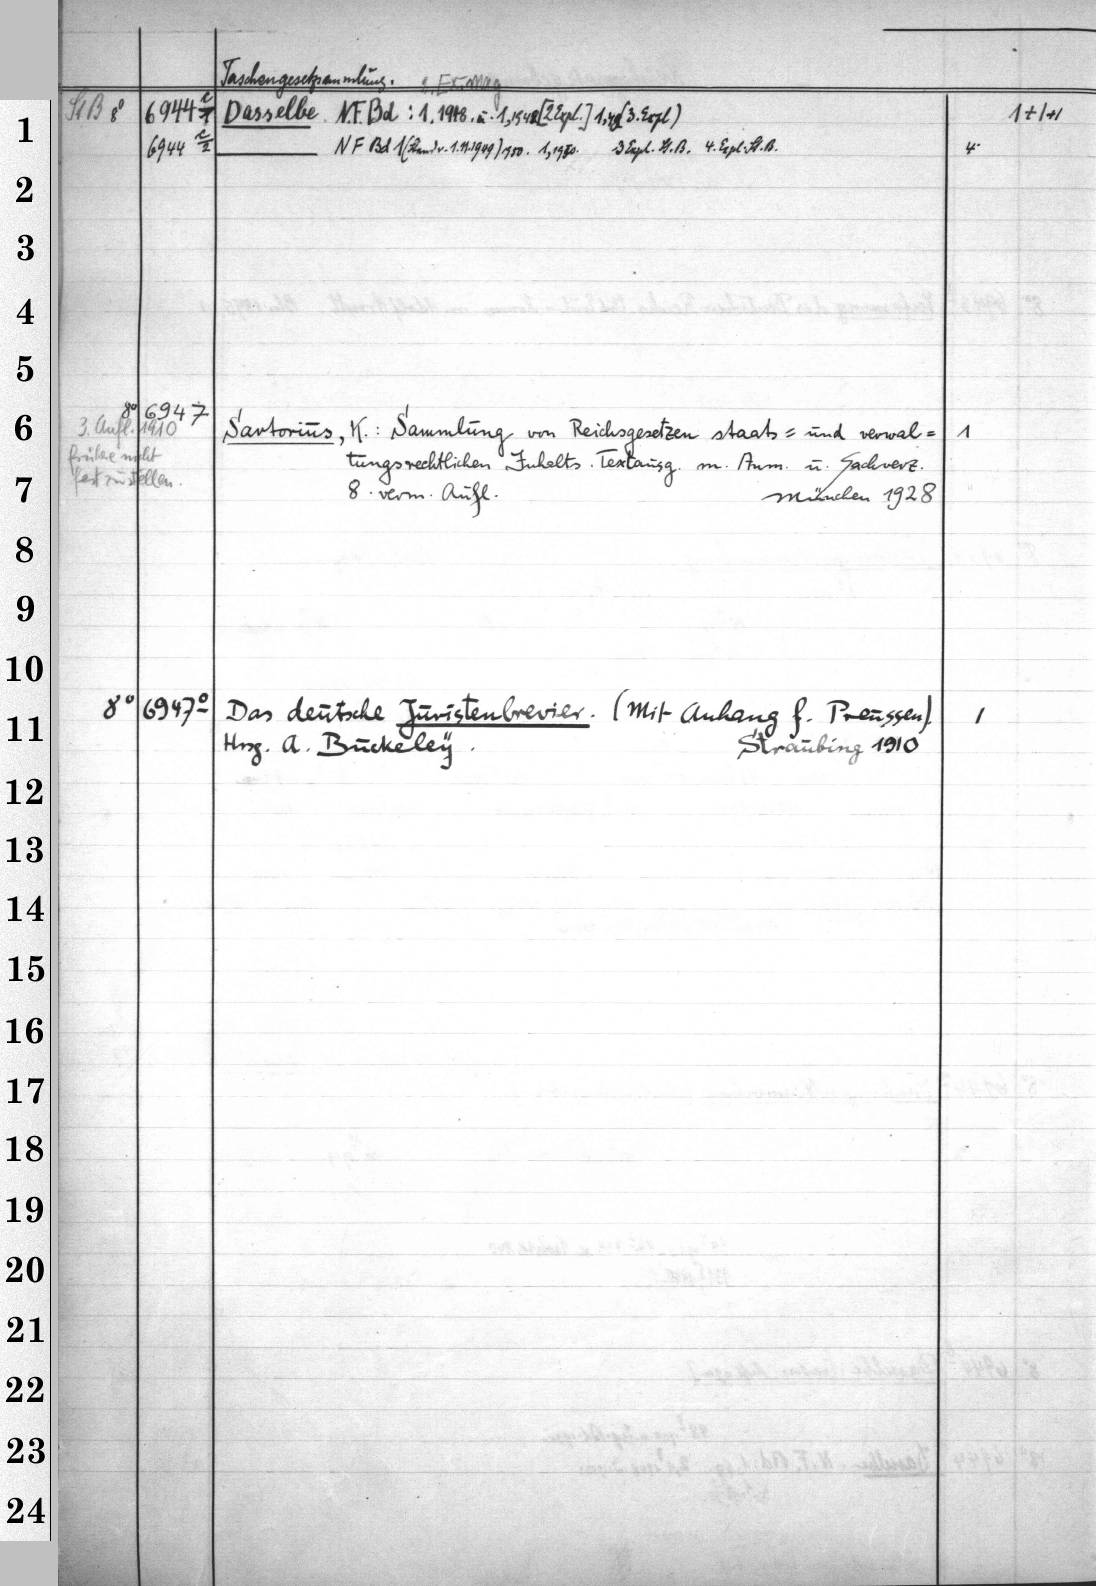 Taschengesetzsammlung.
St.B 8° 6944 c/1 Dasselbe N.F. Bd : 1, 1948. u. 1, 1948 [2 Expl.] 1, 49 (3. Expl) 1+1+1
6944 c/2 N F Bd 1 (Stand v. 1.11.1949) 1950. 1, 1950. 3 Expl. St. B. 4. Expl. St. B. 4
8° 6947
3. Aufl. 1910
frühere nicht
festzustellen.
Sartorius, K. : Sammlung von Reichsgesetzen staats= und verwal= 1
tungsrechtlichen Inhalts. Textausg. m. Anm. u. Sachverz.
8. verm. Aufl. München 1928
8° 6947° Das deutsche Juristenbrevier. (Mit Anhang f. Preussen). 1
Hrsg. A. Buckeley. Straubing 1910
1
2
3
4
5
6
7
8
9
10
11
12
13
14
15
16
17
18
19
20
21
22
23
24